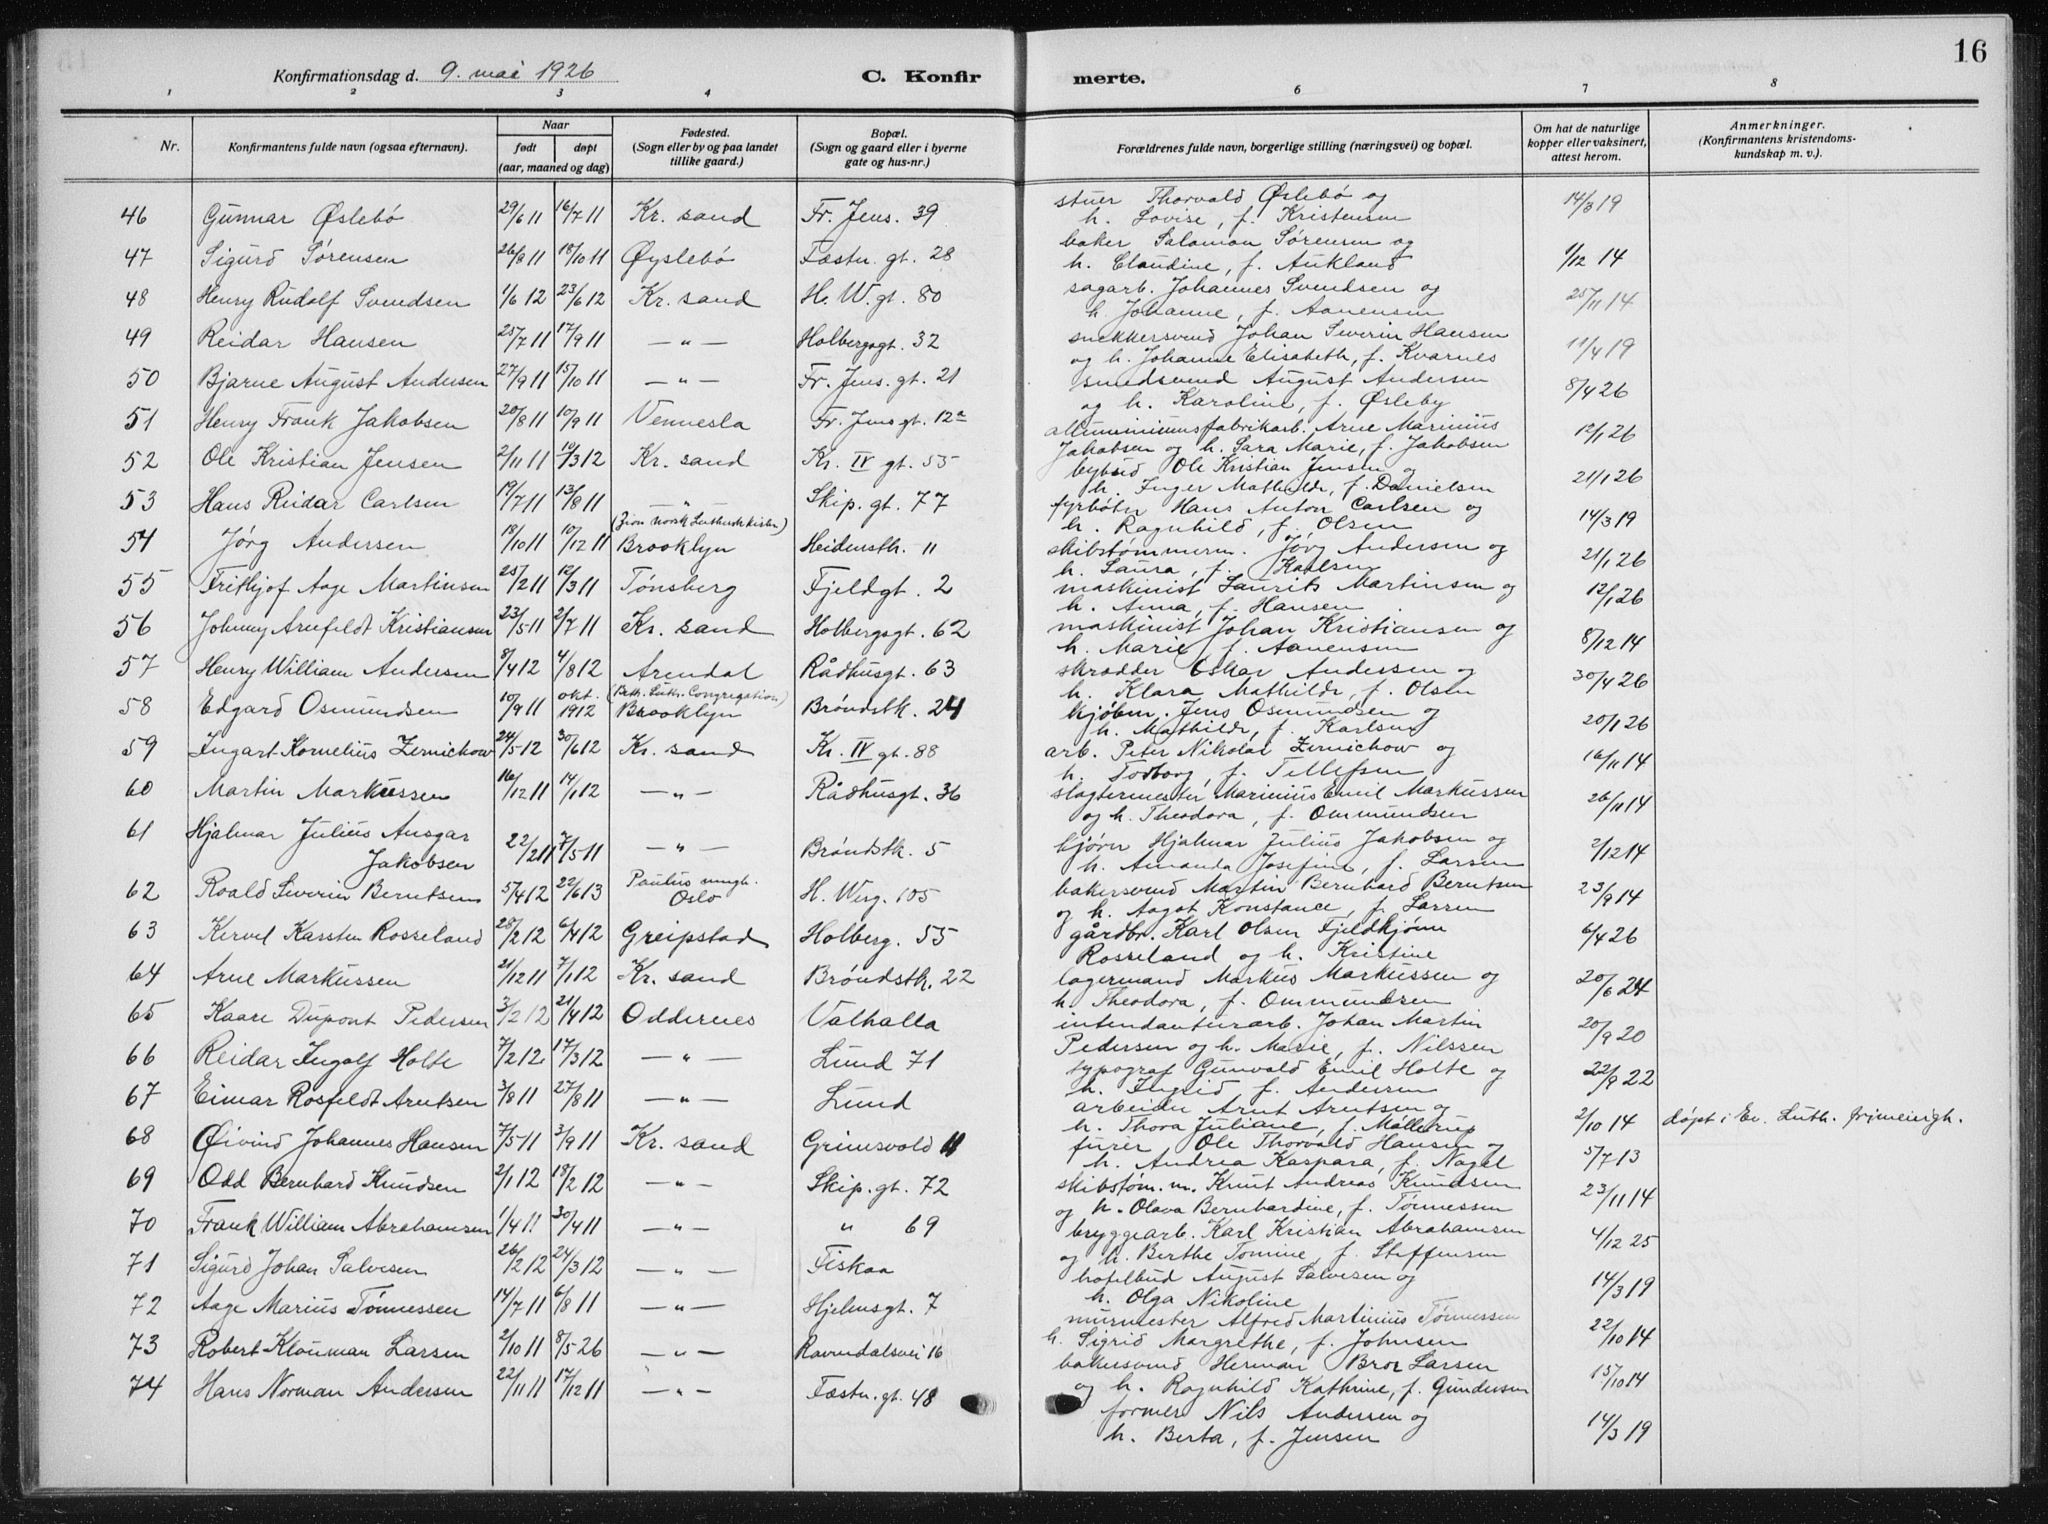 16
Konfirmationsdag d. 9. mai 1926 C. Konfir merte.
1 2 3 4 5 6 7 8
Nr. Konfirmantens fulde navn (ogsaa efternavn). Naar født døpt (aar, maaned og dag) Fødested. (Sogn eller by og paa landet tillike gaard.) Bopæl. (Sogn og gaard eller i byerne gate og hus-nr.) Forældrenes fulde navn, borgerlige stilling (næringsvei) og bopæl. Om hat de naturlige kopper eller vaksinert, attest herom. Anmerkninger. (Konfirmantens kristendomskundskap m. v.).
46 Gunnar Øslebø 29/6 11 16/7 11 Kr. sand Fr. Jens. 39 stuer Thorvald Øslebø og 14/3 19
h. Lovise, f. Kristensen
47 Sigurd Sørensen 26/8 11 18/10 11 Øyslebø Fæstn. gt. 28 baker Salomon Sørensen og 1/12 14
h. Claudine, f. Aukland
48 Henry Rudolf Svendsen 1/6 12 23/6 12 Kr. sand H. W. gt. 80 sagarb. Johannes Svendsen og 25/11 14
h. Johanne, f. Aanensen
49 Reidar Hansen 25/7 11 17/9 11 — " — Holbergsgt. 32 snekkersvend Johan Severin Hansen 11/4 19
og h. Johanne Elisabeth, f. Kvarnes
50 Bjarne August Andersen 27/9 11 15/10 11 — " — Fr. Jens. gt. 21 smedsvend August Andersen 8/4 26
og h. Karoline, f. Øsleby
51 Henry Frank Jakobsen 20/8 11 10/9 11 Vennesla Fr. Jens gt. 12a alluminiumsfabrikarb. Arne Marinius 12/1 26
Jakobsen og h. Sara Marie, f. Jakobsen
52 Ole Kristian Jensen 2/11 11 10/3 12 Kr. sand Kr. IV gt. 55 bybud Ole Kristian Jensen og 21/1 26
h. Inger Mathilde, f. Danielsen
53 Hans Reidar Carlsen 19/7 11 13/8 11 — " — Skip. gt. 77 fyrbøter Hans Anton Carlsen og 14/3 19
h. Ragnhild, f. Olsen
54 Jørg Andersen 18/10 11 10/12 11 (Zion norsk Luthersk kirken) Brooklyn Heidensth. 11 skibstømmerm. Jørg Andersen og 21/1 26
h. Laura, f. Karlsen
55 Fritkjof Aage Martinsen 25/2 11 12/3 11 Tønsberg Fjeldgt. 2 maskinist Laurits Martinsen og 12/1 26
h. Anna, f. Hansen
56 Johnny Arnfeldt Kristiansen 23/5 11 2/7 11 Kr. sand Holbergsgt. 62 maskinist Johan Kristiansen og 8/12 14
h. Marie, f. Aanensen
57 Henry William Andersen 8/4 12 4/8 12 Arendal Rådhusgt. 63 skrædder Oskar Andersen og 30/4 26
h. Klara Mathilde, f. Olsen
58 Edgard Osmundsen 10/9 11 okt. 1912 (Beth. Luth. Congregation) Brooklyn Brøndstk. 24 kjøbm. Jens Osmundsen og 20/1 26
h. Mathilde, f. Karlsen
59 Ingart Kornelius Zernichow 24/5 12 30/6 12 Kr. sand Kr. IV gt. 88 arb. Peter Nikolai Zernichow og 16/11 14
h. Todborg, f. Tellefsen
60 Martin Markussen 16/12 11 14/1 12 — " — Rådhusgt. 36 slagtermester Marinius Emil Markussen 26/11 14
og h. Theodora, f. Ommundsen
61 Hjalmar Julius Ansgar Jakobsen 22/2 11 7/5 11 — " — Brøndstk. 5 kjører Hjalmar Julius Jakobsen og 2/12 14
h. Amanda Josefine, f. Larsen
62 Roald Severin Berntsen 5/4 12 22/6 13 Paulus mngh. Oslo H. Werg. 105 bakersvend Martin Bernhard Berntsen 23/9 14
og h. Aagot Konstance, f. Larsen
63 Kervel Karsten Rosseland 28/2 12 6/4 12 Greipstad Holberg. 55 gårdbr. Karl Olsen Fjeldkjønn 6/4 26
Rosseland og h. Kristine
64 Arne Markussen 21/12 11 7/1 12 Kr. sand Brøndstk. 22 lagermand Markus Markussen og 20/6 24
h. Theodora, f. Ommundsen
65 Kaare Dupont Pedersen 3/2 12 21/4 12 Oddernes Valhalla intendanturarb. Johan Martin 20/9 20
Pedersen og h. Marie, f. Nilssen
66 Reidar Ingolf Holte 7/2 12 17/3 12 — " — Lund 71 typograf Gunvald Emil Holte og 22/9 22
h. Ingrid f. Andersen
67 Eimar Rosfeldt Arntsen 3/8 11 27/8 11 — " — Lund arbeider Arnt Arntsen og 2/10 14 døpt i Ev. Luth. frimenigh.
h. Thora Juliane, f. Møllerup
68 Øivind Johannes Hansen 7/5 11 3/9 11 Kr. sand Grimsvold 11 furer Ole Thorvald Hansen og 5/7 13
h. Andrea Kaspara, f. Nagel
69 Odd Bernhard Knudsen 2/1 12 18/2 12 — " — Skip. gt. 72 skibstøm. m. Knut Andreas Knudsen 23/11 14
og h. Olava Bernhardine, f. Tønnessen
70 Frank William Abrahamsen 1/4 11 30/4 11 — " — " 69 bryggearb. Karl Kristian Abrahamsen 4/12 25
og h. Berthe Tomine, f. Steffensen
71 Sigurd Johan Salvesen 26/2 12 24/3 12 — " — Fiskaa hotelbud August Salvesen og 14/3 19
h. Olga Nikoline
72 Aage Marius Tønnessen 14/7 11 6/8 11 — " — Hjelmsgt. 7 murmester Alfred Martinius Tønnessen 22/10 14
h. Sigrid Margrethe, f. Johnsen
73 Robert Klouman Larsen 2/10 11 8/5 26 — " — Ravndalsvei 16 bakersvend Herman Bror Larsen 15/10 14
og h. Ragnhild Kathrine, f. Gundersen
74 Hans Norman Andersen 22/11 11 17/12 11 — " — Fæstn. gt. 48 former Nils Andersen og 14/3 19
h. Berta, f. Jensen